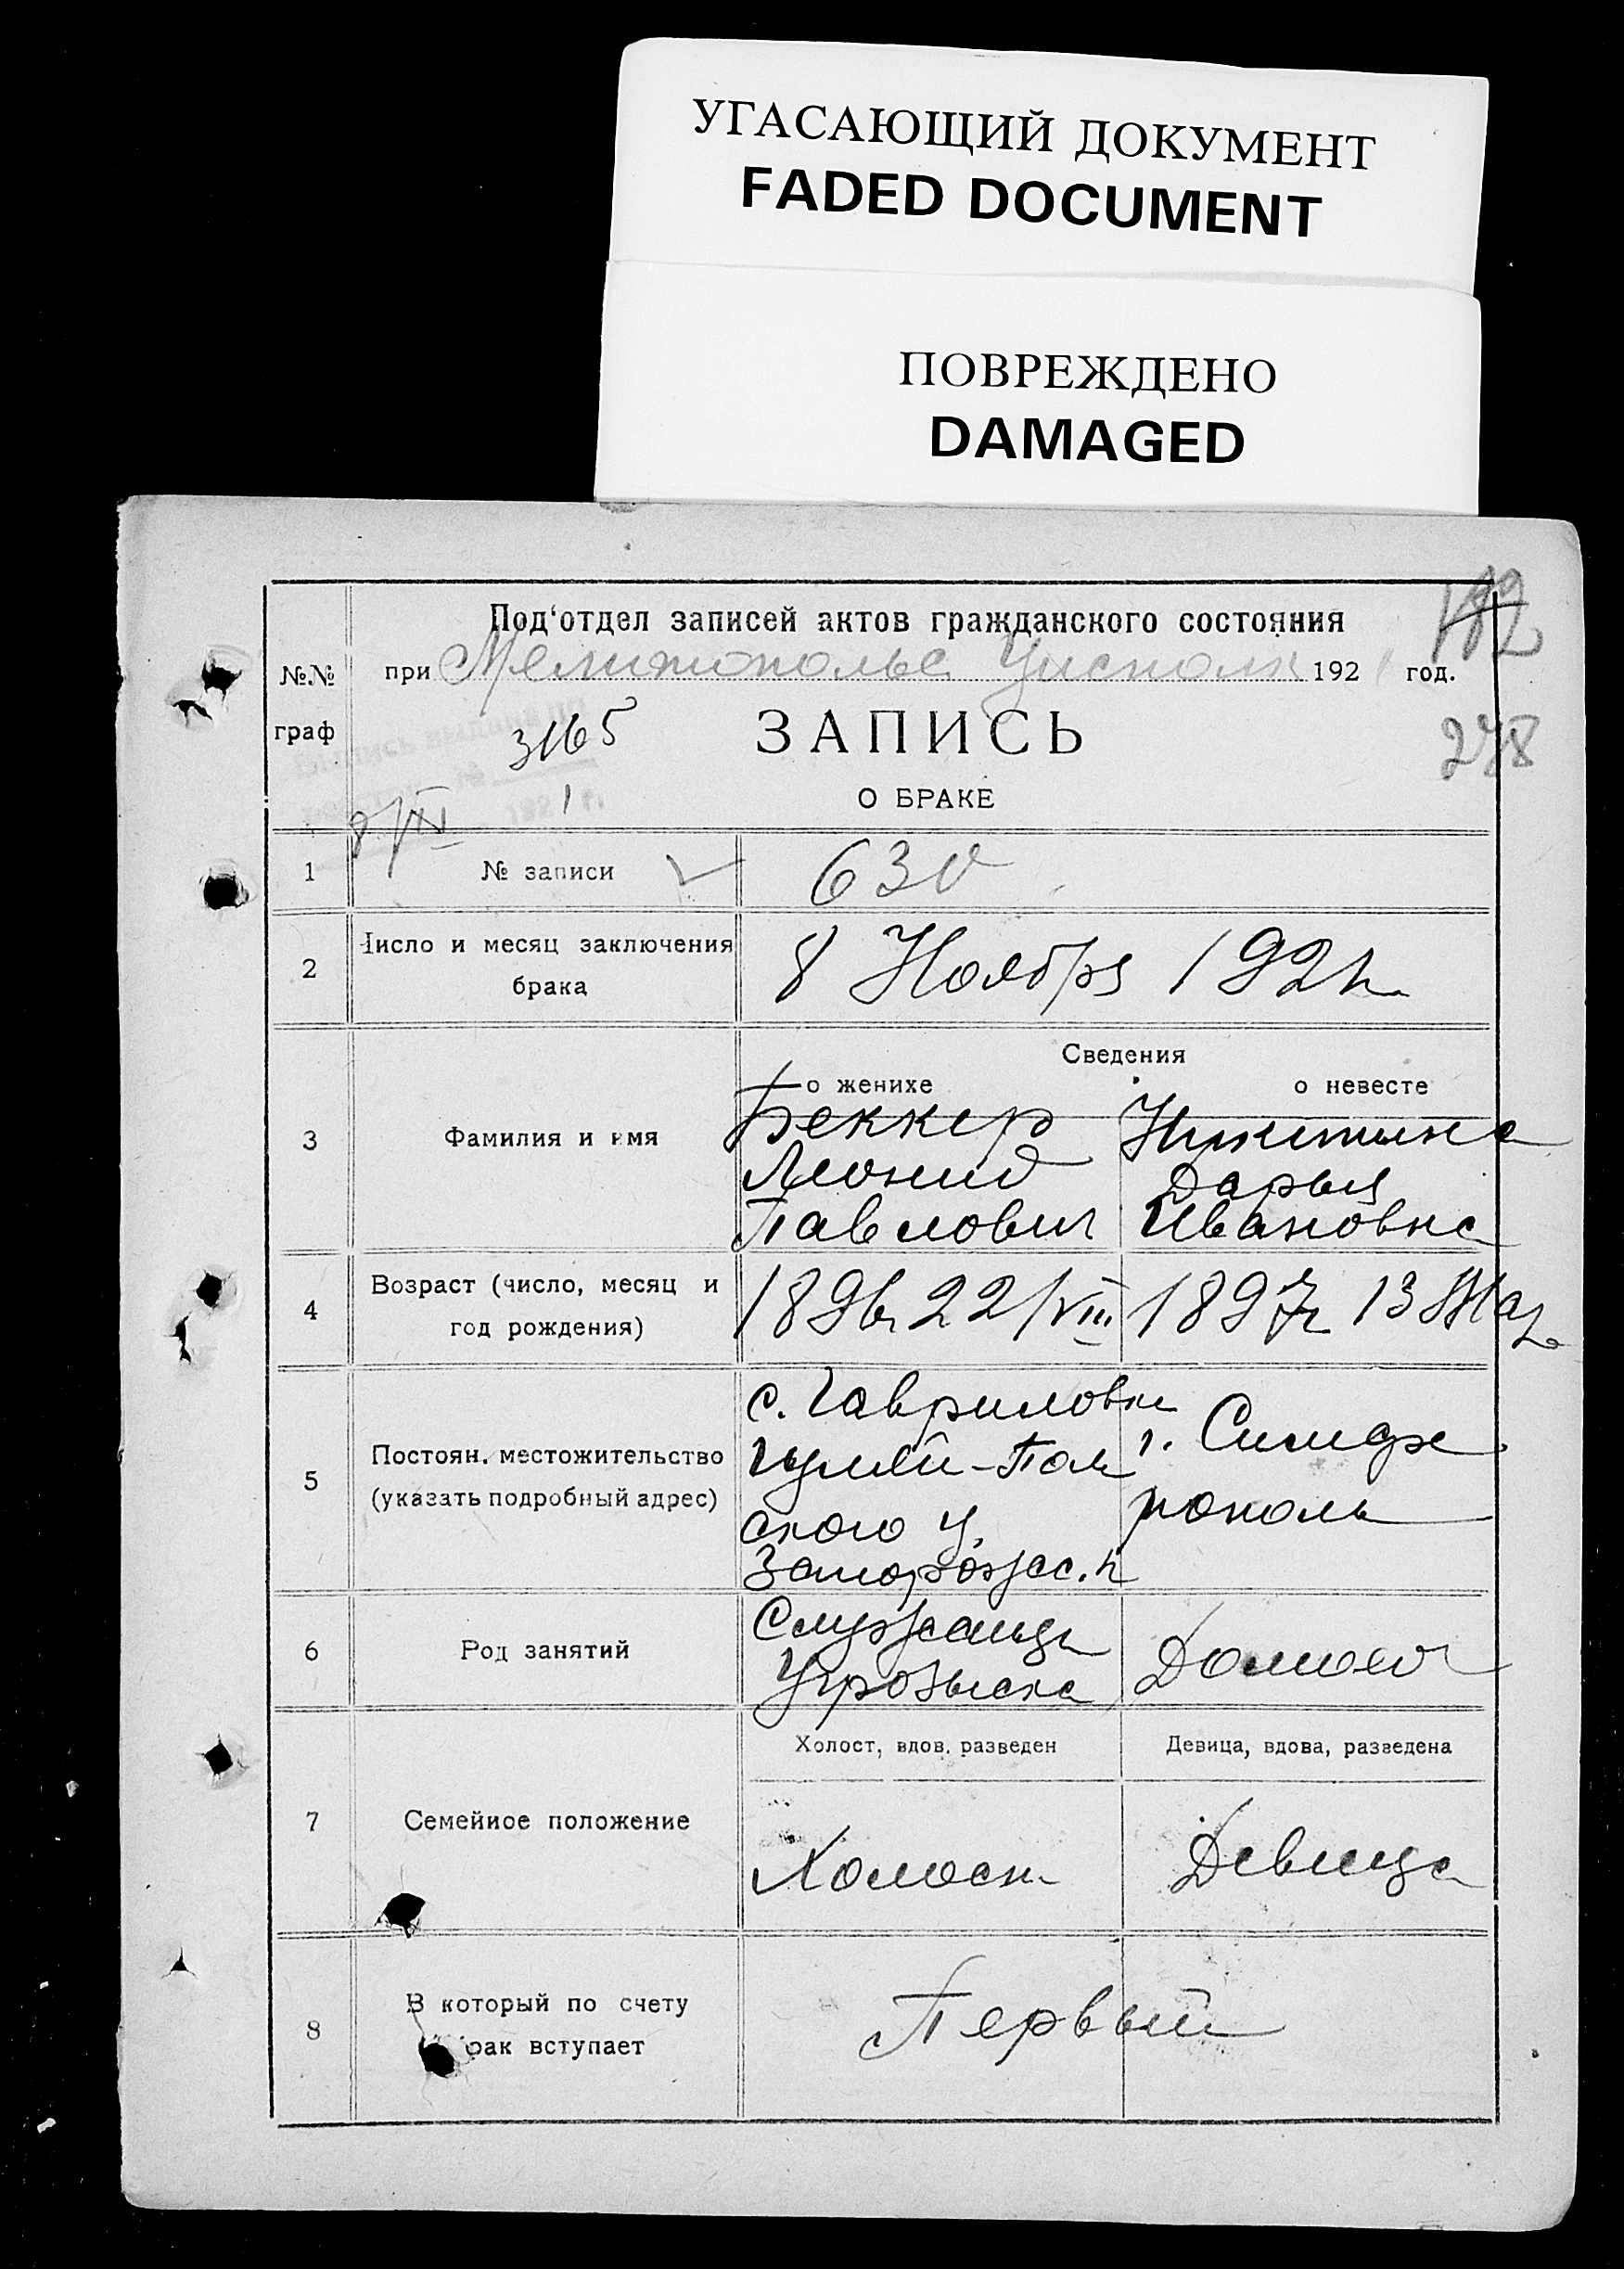 УГАСАЮЩИЙ ДОКУМЕНТ
FADED DOCUMENT
ПОВРЕЖДЕНО
DAMAGED
182
Под‘отдел записей актов гражданского состояния
№№ граф
при Мелитопольс. Уисполк 1921 год.
3165
ЗАПИСЬ
278
О БРАКЕ
8/XI 1
1 № записи 630
2 Число и месяц заключения брака 8 Ноября 1921г.
Сведения
о женихе о невесте
3 Фамилия и имя
Беккер Никитина
Леонид Дарья
Павлович Ивановна
4 Возраст (число, месяц и год рождения) 1896г 22/VIII 1897г 13 Мар
5 Постоян. местожительство (указать подробный адрес)
с. Гавриловки г. Симфе
Гуляй-Поль рополь
ского у.
Запорожс. г
6 Род занятий
Служащи Домохо
Угрозыска
Холост, вдов. разведен Девица, вдова, разведена
7 Семейное положение Холост Девица
8 В который по счету
рак вступает
Первый